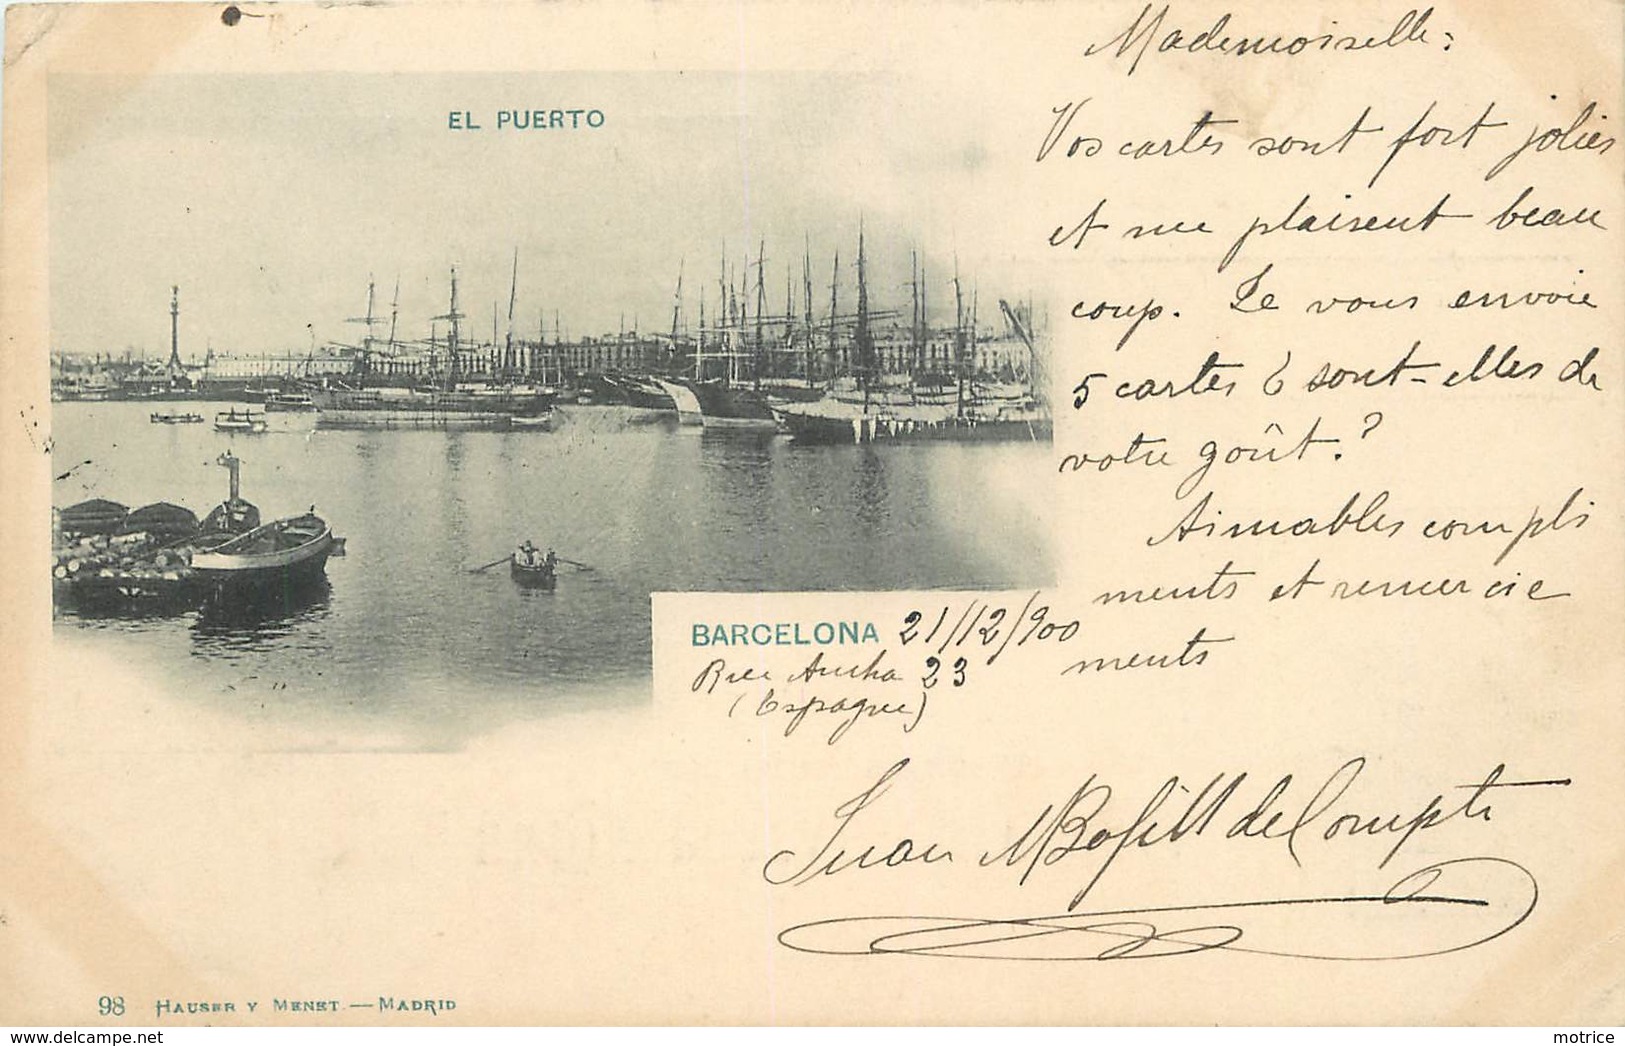 EL PUERTO
Mademoiselle:
Vos cartes sont fort jolies
et me plaisent beau
coup. Je vous envoie
5 cartes & sont-elles de
votre goût?
Aimables compli
ments et remercie
ments
BARCELONA 21/12/900
Rue Ancha 23
(Espagne)
Juan Bofill de Compte
98 HAUSER Y MENET.—MADRID
www.delcampe.net
motrice